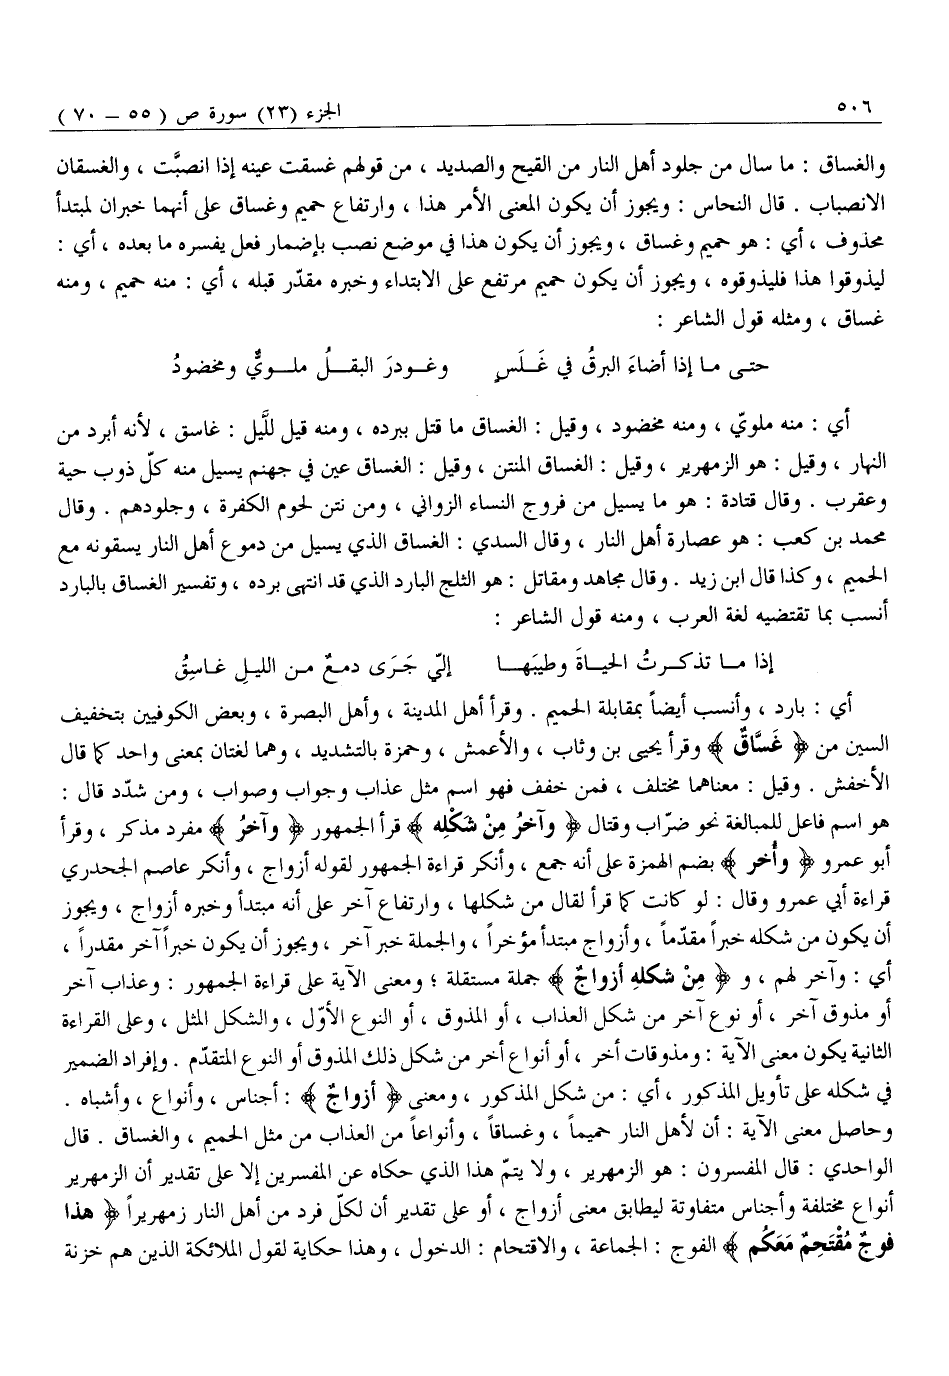 ٥٠٦
الجزء (٢٣) سورة ص ( ٥٥ – ٧٠ )
والغساق : ما سال من جلود أهل النار من القيح والصديد ، من قولهم غسقت عينه إذا انصبَّت ، والغسقان
الانصباب . قال النحاس : ويجوز أن يكون المعنى الأمر هذا ، وارتفاع حميم وغساق على أنهما خبران لمبتدأ
محذوف ، أي : هو حميم وغساق ، ويجوز أن يكون هذا في موضع نصب بإضمار فعل يفسره ما بعده ، أي :
ليذوقوا هذا فليذوقوه ، ويجوز أن يكون حميم مرتفع على الابتداء وخبره مقدّر قبله ، أي : منه حميم ، ومنه
غساق ، ومثله قول الشاعر :
حتـى مـا إذا أضاءَ البرقُ في غَـلَـسٍ وغـودرَ البقـلُ ملـويٌّ ومخضودُ
أي : منه ملويّ ، ومنه مخضود ، وقيل : الغساق ما قتل ببرده ، ومنه قيل للَّيل : غاسق ، لأنه أبرد من
النهار ، وقيل : هو الزمهرير ، وقيل : الغساق المنتن ، وقيل : الغساق عين في جهنم يسيل منه كلّ ذوب حية
وعقرب . وقال قتادة : هو ما يسيل من فروج النساء الزواني ، ومن نتن لحوم الكفرة ، وجلودهم . وقال
محمد بن كعب : هو عصارة أهل النار ، وقال السدي : الغساق الذي يسيل من دموع أهل النار يسقونه مع
الحميم ، وكذا قال ابن زيد . وقال مجاهد ومقاتل : هو الثلج البارد الذي قد انتهى برده ، وتفسير الغساق بالبارد
أنسب بما تقتضيه لغة العرب ، ومنه قول الشاعر :
إذا مـا تذكـرتُ الحيـاةَ وطيبَهـا إليّ جَـرَى دمـعٌ مـن الليـلِ غـاسِقُ
أي : بارد ، وأنسب أيضاً بمقابلة الحميم . وقرأ أهل المدينة ، وأهل البصرة ، وبعض الكوفيين بتخفيف
السين من ﴿ غَسَّاقٌ ﴾ وقرأ يحيى بن وثاب ، والأعمش ، وحمزة بالتشديد ، وهما لغتان بمعنى واحد كما قال
الأخفش . وقيل : معناهما مختلف ، فمن خفف فهو اسم مثل عذاب وجواب وصواب ، ومن شدّد قال :
هو اسم فاعل للمبالغة نحو ضرّاب وقتال ﴿ وآخرُ مِنْ شَكْلِه ﴾ قرأ الجمهور ﴿ وآخرُ ﴾ مفرد مذكر ، وقرأ
أبو عمرو ﴿ وأُخر ﴾ بضم الهمزة على أنه جمع ، وأنكر قراءة الجمهور لقوله أزواج ، وأنكر عاصم الجحدري
قراءة أبي عمرو وقال : لو كانت كما قرأ لقال من شكلها ، وارتفاع آخر على أنه مبتدأ وخبره أزواج ، ويجوز
أن يكون من شكله خبراً مقدّماً ، وأزواج مبتدأ مؤخراً ، والجملة خبر آخر ، ويجوز أن يكون خبراً آخر مقدراً ،
أي : وآخر لهم ، و ﴿ مِنْ شكلهِ أزواجٌ ﴾ جملة مستقلة ؛ ومعنى الآية على قراءة الجمهور : وعذاب آخر
أو مذوق آخر ، أو نوع آخر من شكل العذاب ، أو المذوق ، أو النوع الأوّل ، والشكل المثل ، وعلى القراءة
الثانية يكون معنى الآية : ومذوقات أخر ، أو أنواع أخر من شكل ذلك المذوق أو النوع المتقدّم . وإفراد الضمير
في شكله على تأويل المذكور ، أي : من شكل المذكور ، ومعنى ﴿ أزواجٌ ﴾ : أجناس ، وأنواع ، وأشباه .
وحاصل معنى الآية : أن لأهل النار حميماً ، وغساقاً ، وأنواعاً من العذاب من مثل الحميم ، والغساق . قال
الواحدي : قال المفسرون : هو الزمهرير ، ولا يتمّ هذا الذي حكاه عن المفسرين إلا على تقدير أن الزمهرير
أنواع مختلفة وأجناس متفاوتة ليطابق معنى أزواج ، أو على تقدير أن لكلّ فرد من أهل النار زمهريراً ﴿ هذا
فوجٌ مُقْتَحِمٌ مَعَكُم ﴾ الفوج : الجماعة ، والاقتحام : الدخول ، وهذا حكاية لقول الملائكة الذين هم خزنة